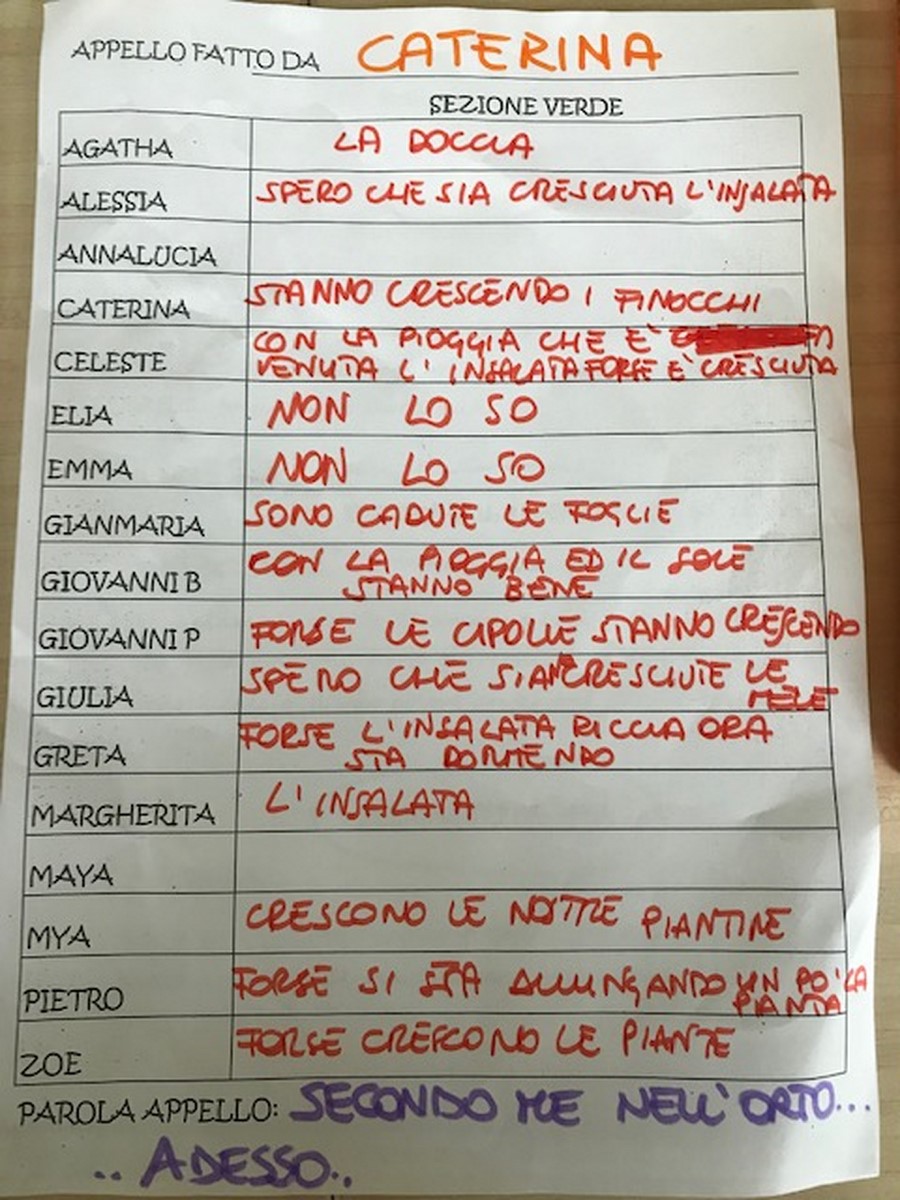 APPELLO FATTO DA CATERINA
SEZIONE VERDE
AGATHA LA DOCCIA
ALESSIA SPERO CHE SIA CRESCIUTA L'INSALATA
ANNALUCIA
CATERINA STANNO CRESCENDO I FINOCCHI
CELESTE CON LA PIOGGIA CHE E'
VENUTA L'INSALATA FORSE E' CRESCIUTA
ELIA NON LO SO
EMMA NON LO SO
GIANMARIA SONO CADUTE LE FOGLIE
GIOVANNI B CON LA PIOGGIA ED IL SOLE
STANNO BENE
GIOVANNI P FORSE LE CIPOLLE STANNO CRESCENDO
GIULIA SPERO CHE SIAN CRESCIUTE LE
MELE
GRETA FORSE L'INSALATA RICCIA ORA
STA DORMENDO
MARGHERITA L'INSALATA
MAYA
MYA CRESCONO LE NOSTRE PIANTINE
PIETRO FORSE SI STA ALLUNGANDO UN PO' LA
PIANTA
ZOE FORSE CRESCONO LE PIANTE
PAROLA APPELLO: SECONDO ME NELL'ORTO...
.. ADESSO..